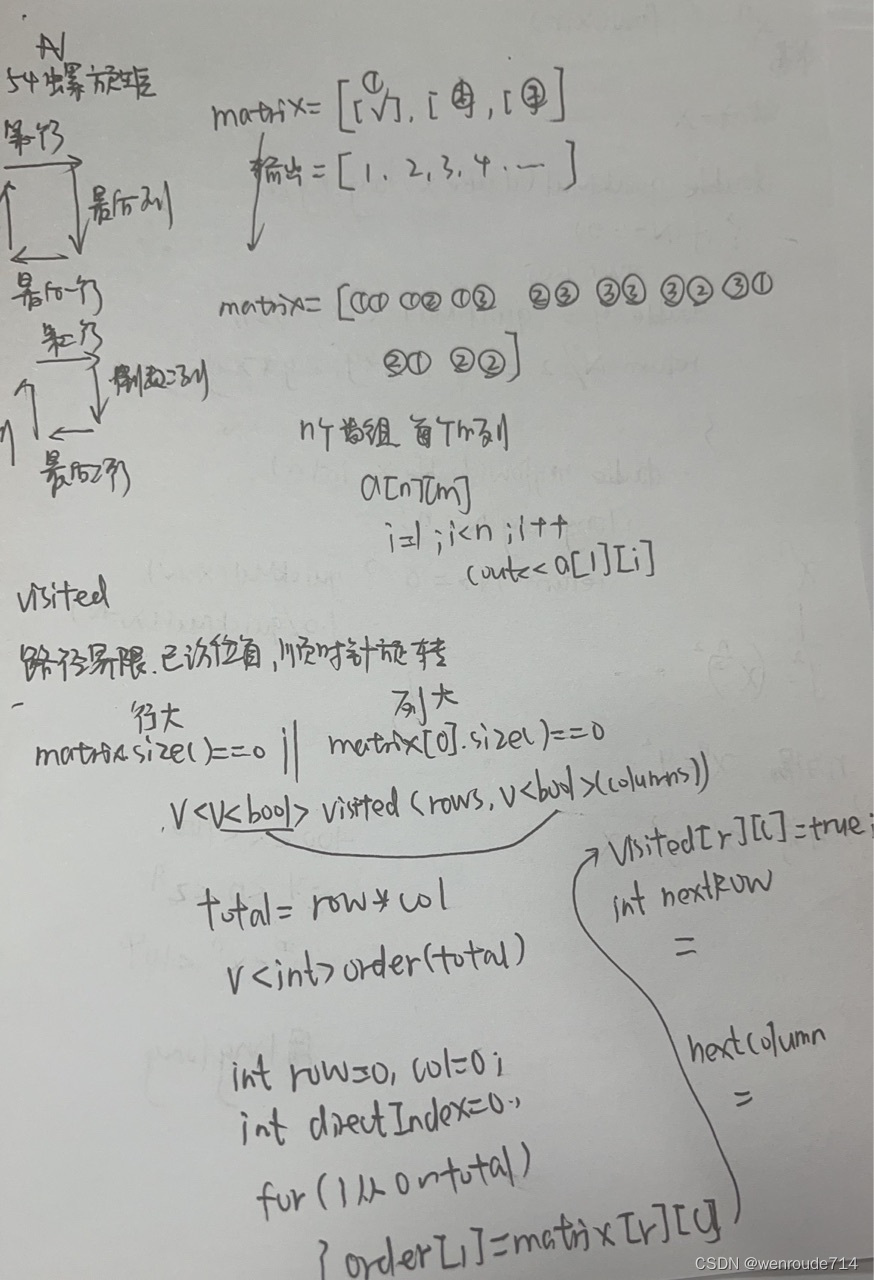 54 螺旋矩
第一行
最后列
最后一行
第二行
倒数二列
最后2行
matrix= [[√], [ ], [ ]]
输出 = [1. 2, 3, 4 ·— ]
matrix= [①① ①② ①③ ②③ ③③ ③② ③①
②① ②②]
n个数组 每个m列
a[n][m]
i=1 ;i<n ;i++
cout<< a[1][i]
visited
路径界限.已访位自,顺时针旋转
行大 列大
matrix.size()==0 || matrix[0].size()==0
V<V<bool> visited (rows, V<bool>(columns))
total= row*col
V<int> order(total)
int row=0, col=0;
int directIndex=0;
for (i从0ntotal)
} order[i]=matrix[r][c]
visited[r][c]=true;
int nextRow
=
nextcolumn
=
CSDN @wenroude714